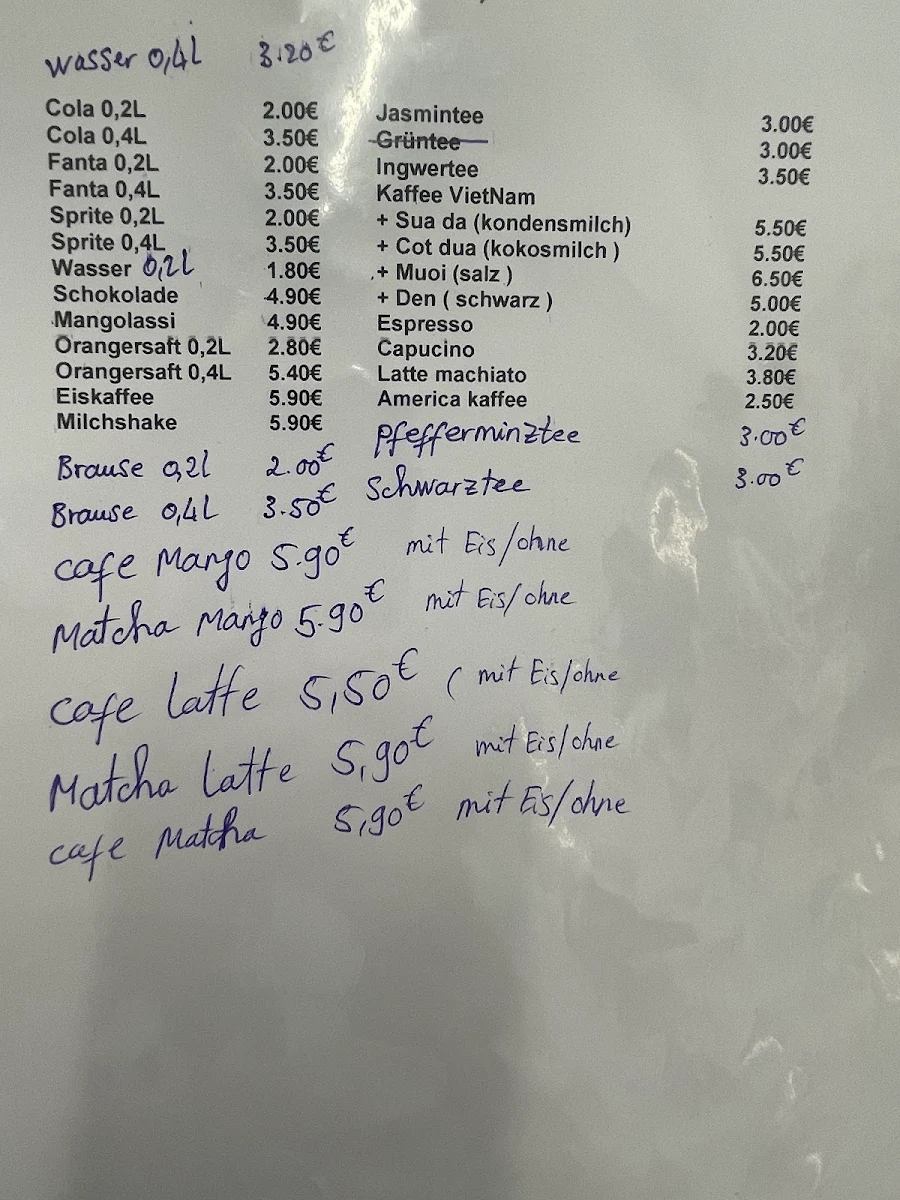 Wasser 0,4L 3.20€
Cola 0,2L 2.00€
Cola 0,4L 3.50€
Fanta 0,2L 2.00€
Fanta 0,4L 3.50€
Sprite 0,2L 2.00€
Sprite 0,4L 3.50€
Wasser 0,2L 1.80€
Schokolade 4.90€
Mangolassi 4.90€
Orangersaft 0,2L 2.80€
Orangersaft 0,4L 5.40€
Eiskaffee 5.90€
Milchshake 5.90€
Brause 0,2l 2.00€
Brause 0,4L 3.50€
Jasmintee 3.00€
Grüntee 3.00€
Ingwertee 3.50€
Kaffee VietNam
+ Sua da (kondensmilch) 5.50€
+ Cot dua (kokosmilch ) 5.50€
+ Muoi (salz ) 6.50€
+ Den ( schwarz ) 5.00€
Espresso 2.00€
Capucino 3.20€
Latte machiato 3.80€
America kaffee 2.50€
Pfefferminztee 3.00€
Schwarztee 3.00€
cafe Mango 5.90€ mit Eis/ohne
Matcha Mango 5.90€ mit Eis/ohne
cafe latte 5,50€ ( mit Eis/ohne
Matcha Latte 5,90€ mit Eis/ohne
cafe Matcha 5,90€ mit Eis/ohne